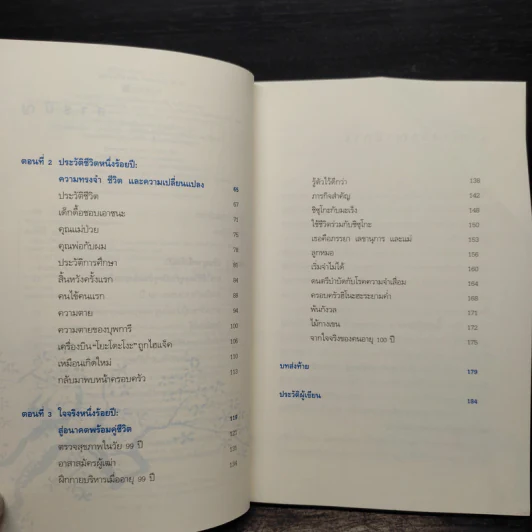 ตอนที่ 2 ประวัติชีวิตหนึ่งร้อยปี:
ความทรงจำ ชีวิต และความเปลี่ยนแปลง 65
ประวัติชีวิต 67
เด็กดื้อชอบเอาชนะ 71
คุณแม่ป่วย 76
คุณพ่อกับผม 78
ประวัติการศึกษา
สิ้นหวังครั้งแรก
คนไข้คนแรก
ความตาย
ความตายของบุพการี 100
เครื่องบิน “โยะโดะโงะ” ถูกไฮแจ็ค 106
เหมือนเกิดใหม่ 110
กลับมาพบหน้าครอบครัว 113
ตอนที่ 3 ใจจริงหนึ่งร้อยปี:
สู่อนาคตพร้อมคู่ชีวิต 119
ตรวจสุขภาพในวัย 99 ปี 121
อาสาสมัครผู้เฒ่า
ฝึกกายบริหารเมื่ออายุ 99 ปี
รู้ตัวไว้ดีกว่า 138
ภารกิจสำคัญ 142
ชิซุโกะกับมะเร็ง 148
ใช้ชีวิตร่วมกับชิซุโกะ 150
เธอคือภรรยา เลขานุการ และแม่ 153
ลูกหมอ 156
เริ่มจำไม่ได้ 160
ดนตรีบำบัดกับโรคความจำเสื่อม 164
ครอบครัวฮิโนะฮะระยามค่ำ 168
พันกังวล 171
ไม้กางเขน 172
จากใจจริงของคนอายุ 100 ปี 175
บทส่งท้าย 179
ประวัติผู้เขียน 184